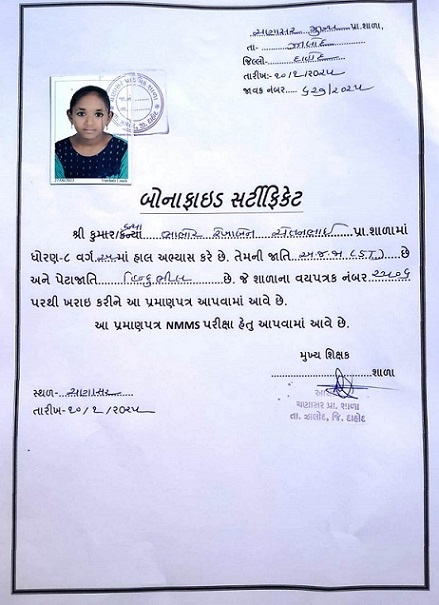 ચણાસર મુખ્ય પ્રા.શાળા,
તા- ઝાલોદ
જિલ્લો- દાહોદ
તારીખ:- ૨૦/૧/૨૦૨૫
જાવક નંબર..... /૨૦૨૫
બોનાફાઇડ સર્ટીફિકેટ
શ્રી કુમાર/કન્યા પ્રા.શાળામાં
ધોરણ-૮ વર્ગ માં હાલ અભ્યાસ કરે છે. તેમની જાતિ અ.જ.જા (ST) છે
અને પેટાજાતિ હિન્દુ ભીલ છે. જે શાળાના વયપત્રક નંબર
પરથી ખરાઇ કરીને આ પ્રમાણપત્ર આપવામાં આવે છે.
આ પ્રમાણપત્ર NMMS પરીક્ષા હેતુ આપવામાં આવે છે.
મુખ્ય શિક્ષક
શાળા
સ્થળ:- ચણાસર
તારીખ-૨૦/૧/૨૦૨૫
ચણાસર પ્રા. શાળા
તા. ઝાલોદ, જિ. દાહોદ